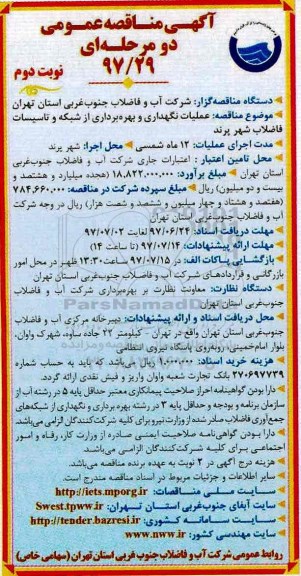 آگهی مناقصه عمومی
دو مرحله‌ای
۹۷/۲۹
نوبت دوم
دستگاه مناقصه‌گزار: شرکت آب و فاضلاب جنوب‌غربی استان تهران
موضوع مناقصه: عملیات نگهداری و بهره‌برداری از شبکه و تاسیسات
فاضلاب شهر پرند
مدت اجرای عملیات: ۱۲ ماه شمسی محل اجرا: شهر پرند
محل تامین اعتبار: اعتبارات جاری شرکت آب و فاضلاب جنوب‌غربی
استان تهران مبلغ برآورد: ۱۸,۸۲۲,۰۰۰,۰۰۰ (هجده میلیارد و هشتصد و
بیست و دو میلیون) ریال مبلغ سپرده شرکت در مناقصه: ۷۸۴,۶۶۰,۰۰۰
(هفتصد و هشتاد و چهار میلیون و ششصد و شصت هزار) ریال در وجه شرکت
آب و فاضلاب جنوب‌غربی استان تهران
مهلت دریافت اسناد: ۹۷/۰۶/۲۴ لغایت ۹۷/۰۷/۰۲
مهلت ارائه پیشنهادات: ۹۷/۰۷/۱۴ (تا ساعت ۱۴)
بازگشایی پاکات الف: در ۹۷/۰۷/۱۵ ساعت ۱۳:۳۰ ظهر در محل امور
بازرگانی و قراردادهای شرکت آب و فاضلاب جنوب‌غربی استان تهران
دستگاه نظارت: معاونت نظارت بر بهره‌برداری شرکت آب و فاضلاب
جنوب‌غربی استان تهران
محل دریافت اسناد و ارائه پیشنهادات: دبیرخانه مرکزی آب و فاضلاب
جنوب‌غربی استان تهران واقع در تهران - کیلومتر ۲۲ جاده ساوه، شهرک واوان،
بلوار امام‌خمینی، روبه‌روی پاسگاه نیروی انتظامی
هزینه خرید اسناد: ۱,۰۰۰,۰۰۰ ریال می‌باشد که باید به حساب شماره
۲۷۰۶۹۷۷۳۹ بانک تجارت شعبه واوان واریز و فیش نقدی ارائه گردد.
دارا بودن گواهینامه احراز صلاحیت پیمانکاری معتبر حداقل پایه ۵ در رشته آب از
سازمان برنامه و بودجه و حداقل پایه ۳ در رشته بهره برداری و نگهداری از شبکه‌های
جمع‌آوری فاضلاب صادر شده از وزارت نیرو برای کلیه شرکت‌کنندگان الزامی می‌باشد.
دارا بودن گواهی‌نامه صلاحیت ایمنی صادره از وزارت کار، رفاه و امور
اجتماعی برای کلیه شرکت‌کنندگان الزامی می‌باشد.
هزینه درج آگهی در ۲ نوبت به عهده برنده مناقصه می‌باشد.
سایر اطلاعات و جزئیات مربوط در اسناد مناقصه مندرج است.
سایت ملی مناقصات: http://iets.mporg.ir
سایت آبفای جنوب‌غربی استان تهران: Swest.tpww.ir
سایت سامانه کشوری: http://tender.bazresi.ir
سایت مهندسی کشور: www.nww.ir
روابط عمومی شرکت آب و فاضلاب جنوب غربی استان تهران (سهامی خاص)